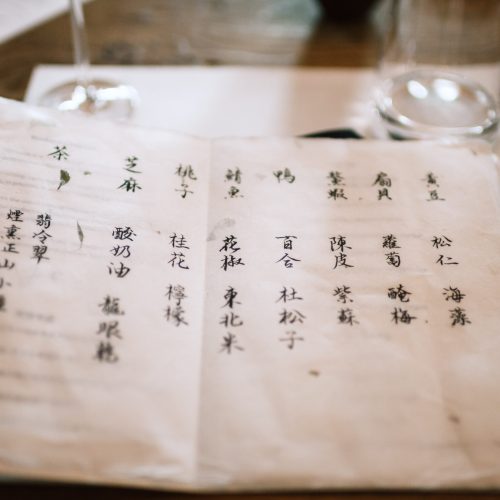 黃豆 松仁 海藻
扇貝 蘿蔔 醃梅
螯蝦 陳皮 紫蘇
鴨 百合 杜松子
鯖魚 花椒 東北米
桃子 桂花 檸檬
芝麻 酸奶油 龍眼乾
茶 翡冷翠
煙熏正山小種